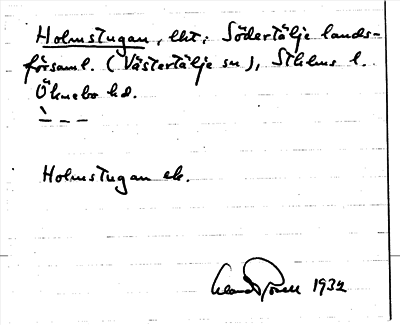 Holmstugan, lht, Södertälje lands-
församl. (Västertälje sn), Sthlms l.
Öknebo hd.
Holmstugan ek.
1932